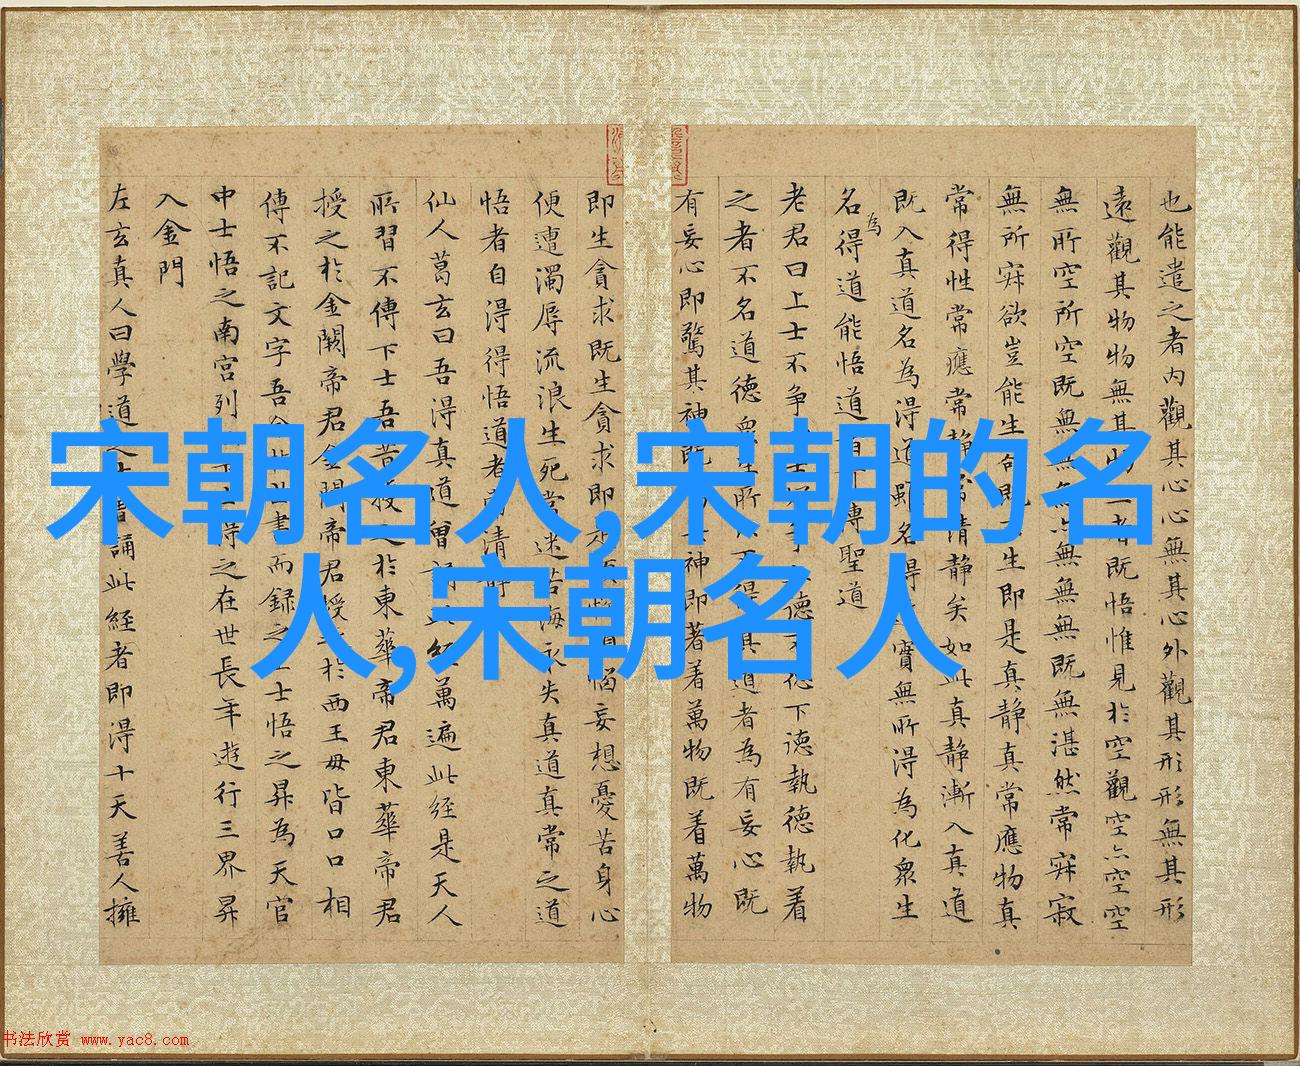 也能遣之者内觀其心心無其心外觀其形形無其形
遠觀其物物無其者既悟惟見於空觀空亦空空
無所空所空既無無無亦無無無既無湛然常寂寂
無所寂欲豈能生既生即是真静真常應物真
常得性常應常静常清静矣如此真静漸入真道
既入真道名為得道雖名得實無所得為化衆生
名為得道能悟道傳聖道
老君曰上士不争争德不德下德執德執着
之者不名道德衆生所不得真道者為有妄心既
有妄心即驚其神既其神即著着萬物既着萬物
即生貪求既生貪求即惱妄想憂苦身心
便遭濁辱流浪生死常迷苦海永失真道真常之道
悟者自得得悟道者常清静
仙人葛玄曰吾得真道曾誦此經萬遍此經是天人
所習不傳下士吾昔授之於東華帝君東華帝君
授之於金闕帝君金闕帝君授之於西王母皆口口相
傳不記文字吾今於世書而録之上士悟之昇為天官
中士悟之南宫列官下士得之在世長年遊行三界昇
入金門
左玄真人曰學道之士持誦此經者即得十天善人擁
宋朝名人,宋朝的名
人,宋朝名人
书法欣赏 www.yac8.com